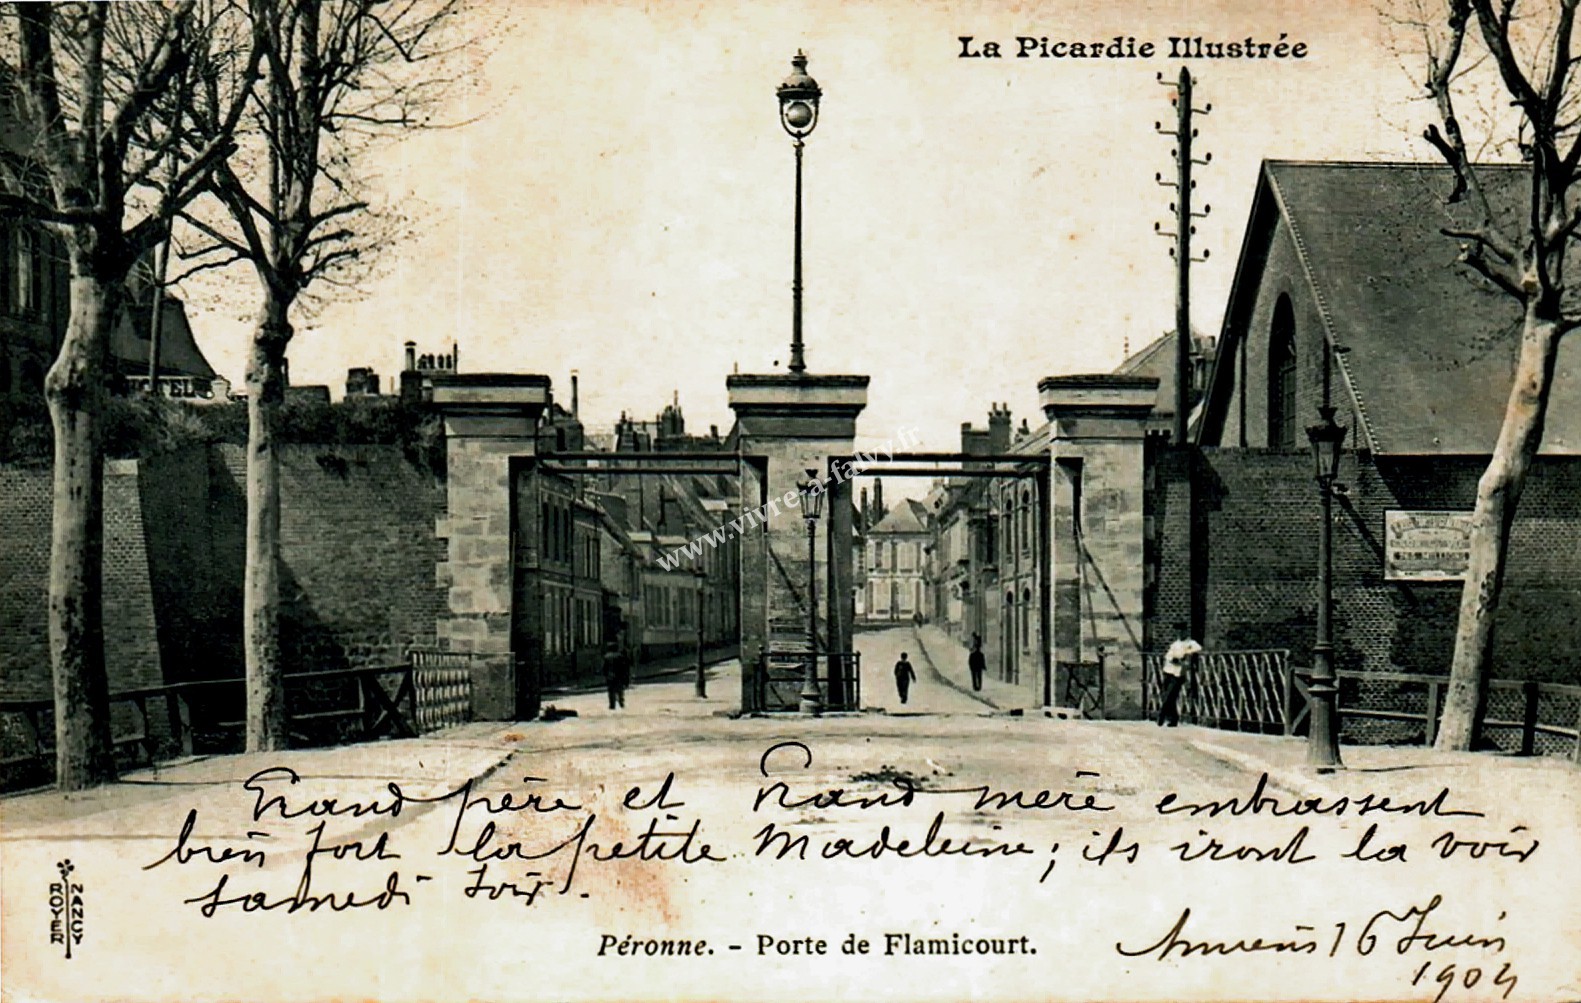 La Picardie Illustrée
HOTEL
www.vivre-a-falvy.fr
DES MILLIONS
Grand père et Grand mère embrassent
bien fort la petite Madeleine ; ils iront la voir
samedi soir.
ROYER
NANCY
Péronne. - Porte de Flamicourt.
Amiens 16 Juin
1904